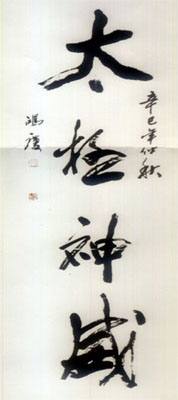 太極神威
辛巳年仲秋
馮慶